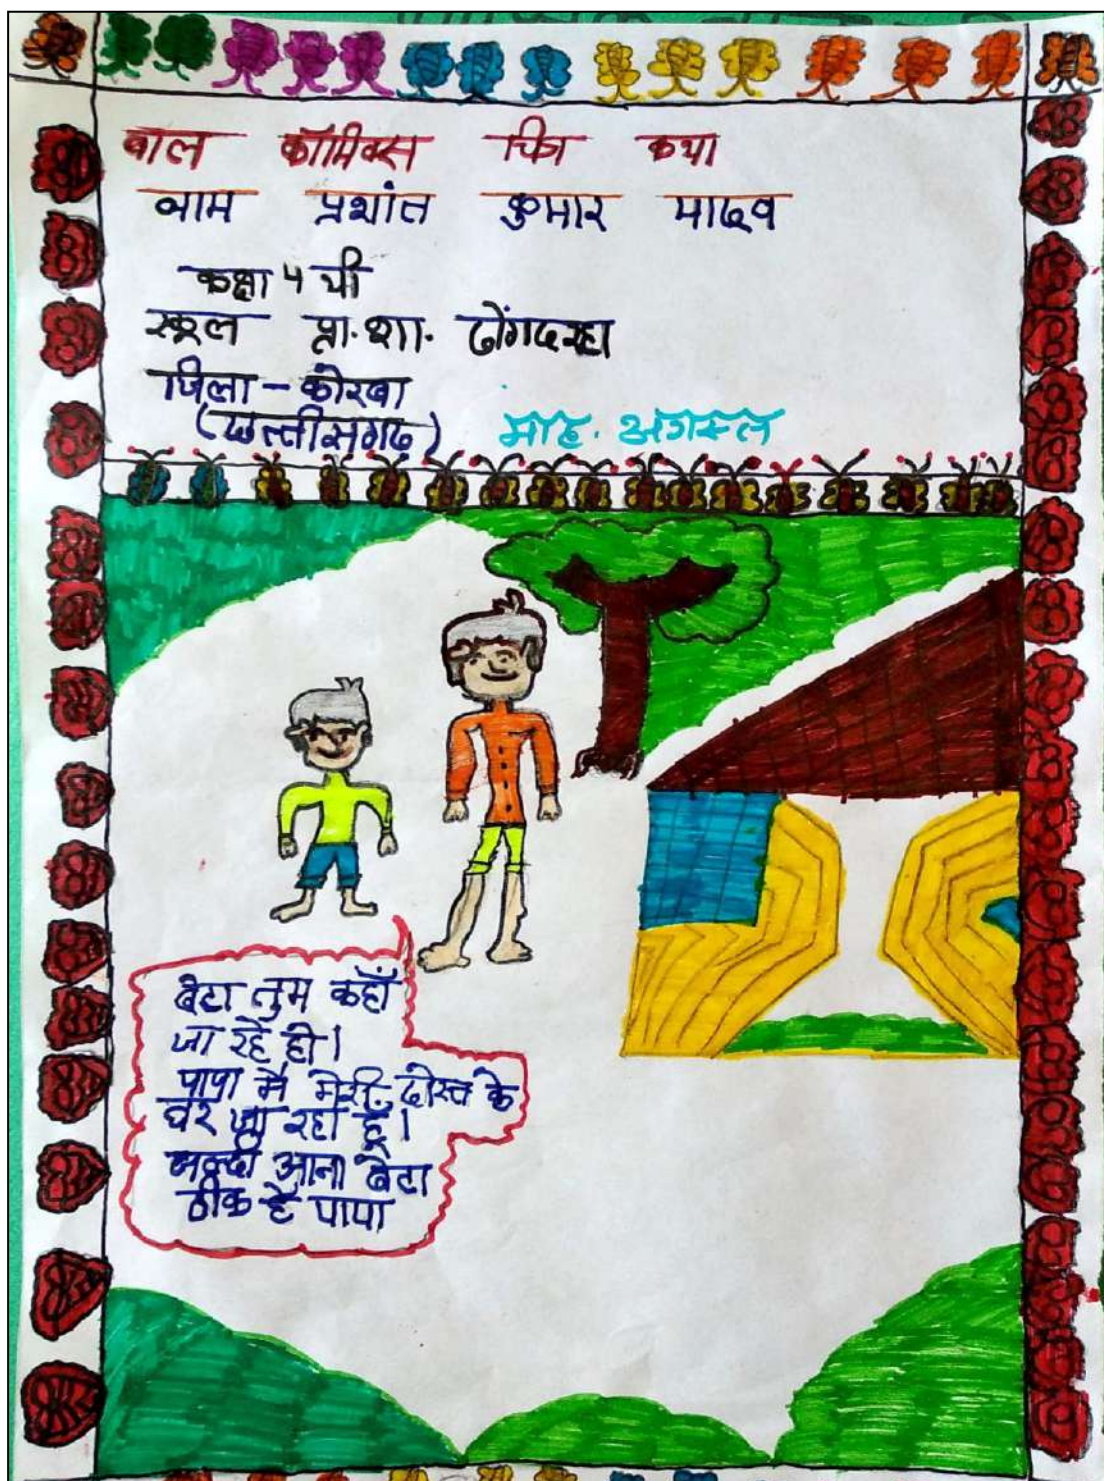 बाल कॉमिक्स चित्र कथा
नाम प्रशांत कुमार यादव
कक्षा 4 थी
स्कूल प्रा. शा. ढोंगदरहा
जिला - कोरबा
(छत्तीसगढ़) माह. अगस्त
बेटा तुम कहाँ
जा रहे हो।
पापा मैं मेरी दोस्त के
घर जा रहा हूँ।
जल्दी आना बेटा
ठीक है पापा